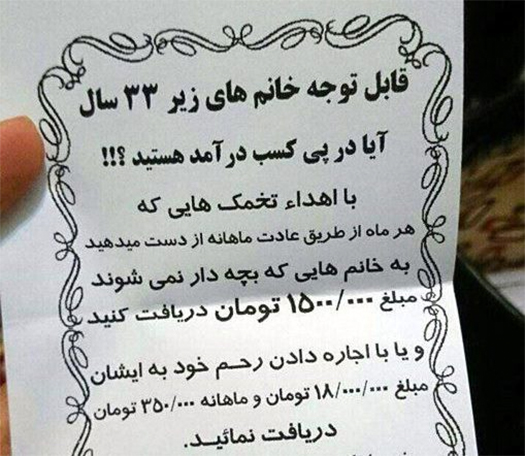 قابل توجه خانم های زیر ۳۳ سال
آیا در پی کسب درآمد هستید ؟!!
با اهداء تخمک هایی که
هر ماه از طریق عادت ماهانه از دست میدهید
به خانم هایی که بچه دار نمی شوند
مبلغ ۱۵۰۰/۰۰۰ تومان دریافت کنید
و یا با اجاره دادن رحم خود به ایشان
مبلغ ۱۸/۰۰۰/۰۰۰ تومان و ماهانه ۳۵۰/۰۰۰ تومان
دریافت نمائید.